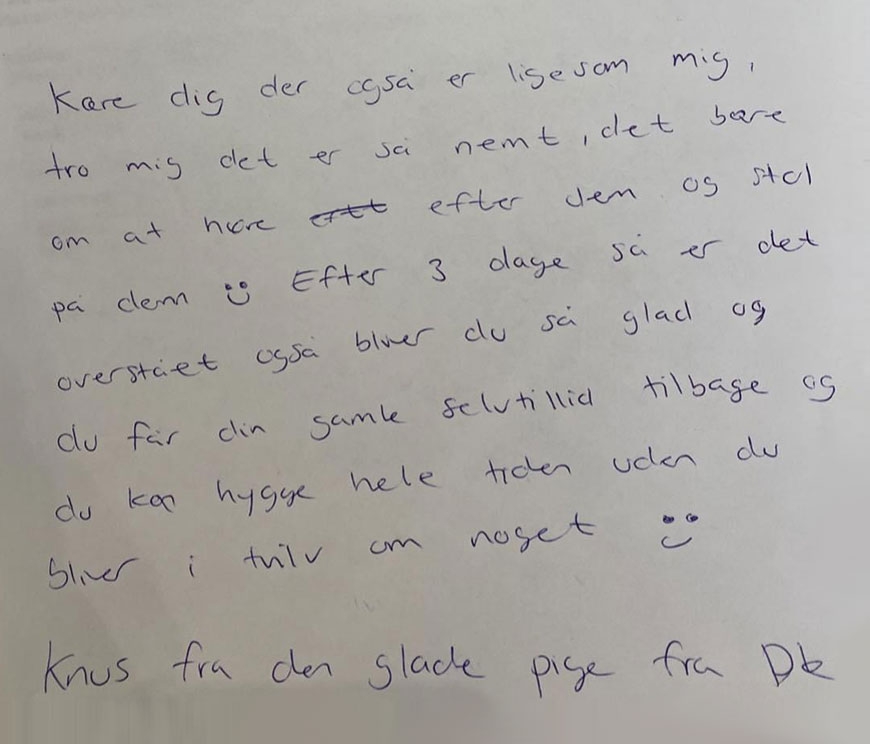 Kære dig der også er ligesom mig,
tro mig det er så nemt, det bare
om at høre efter dem og stol
på dem Efter 3 dage så er det
overstået også bliver du så glad og
du får din gamle selvtillid tilbage og
du kan hygge hele tiden uden du
bliver i tvilv om noget
Knus fra den glade pige fra Dk